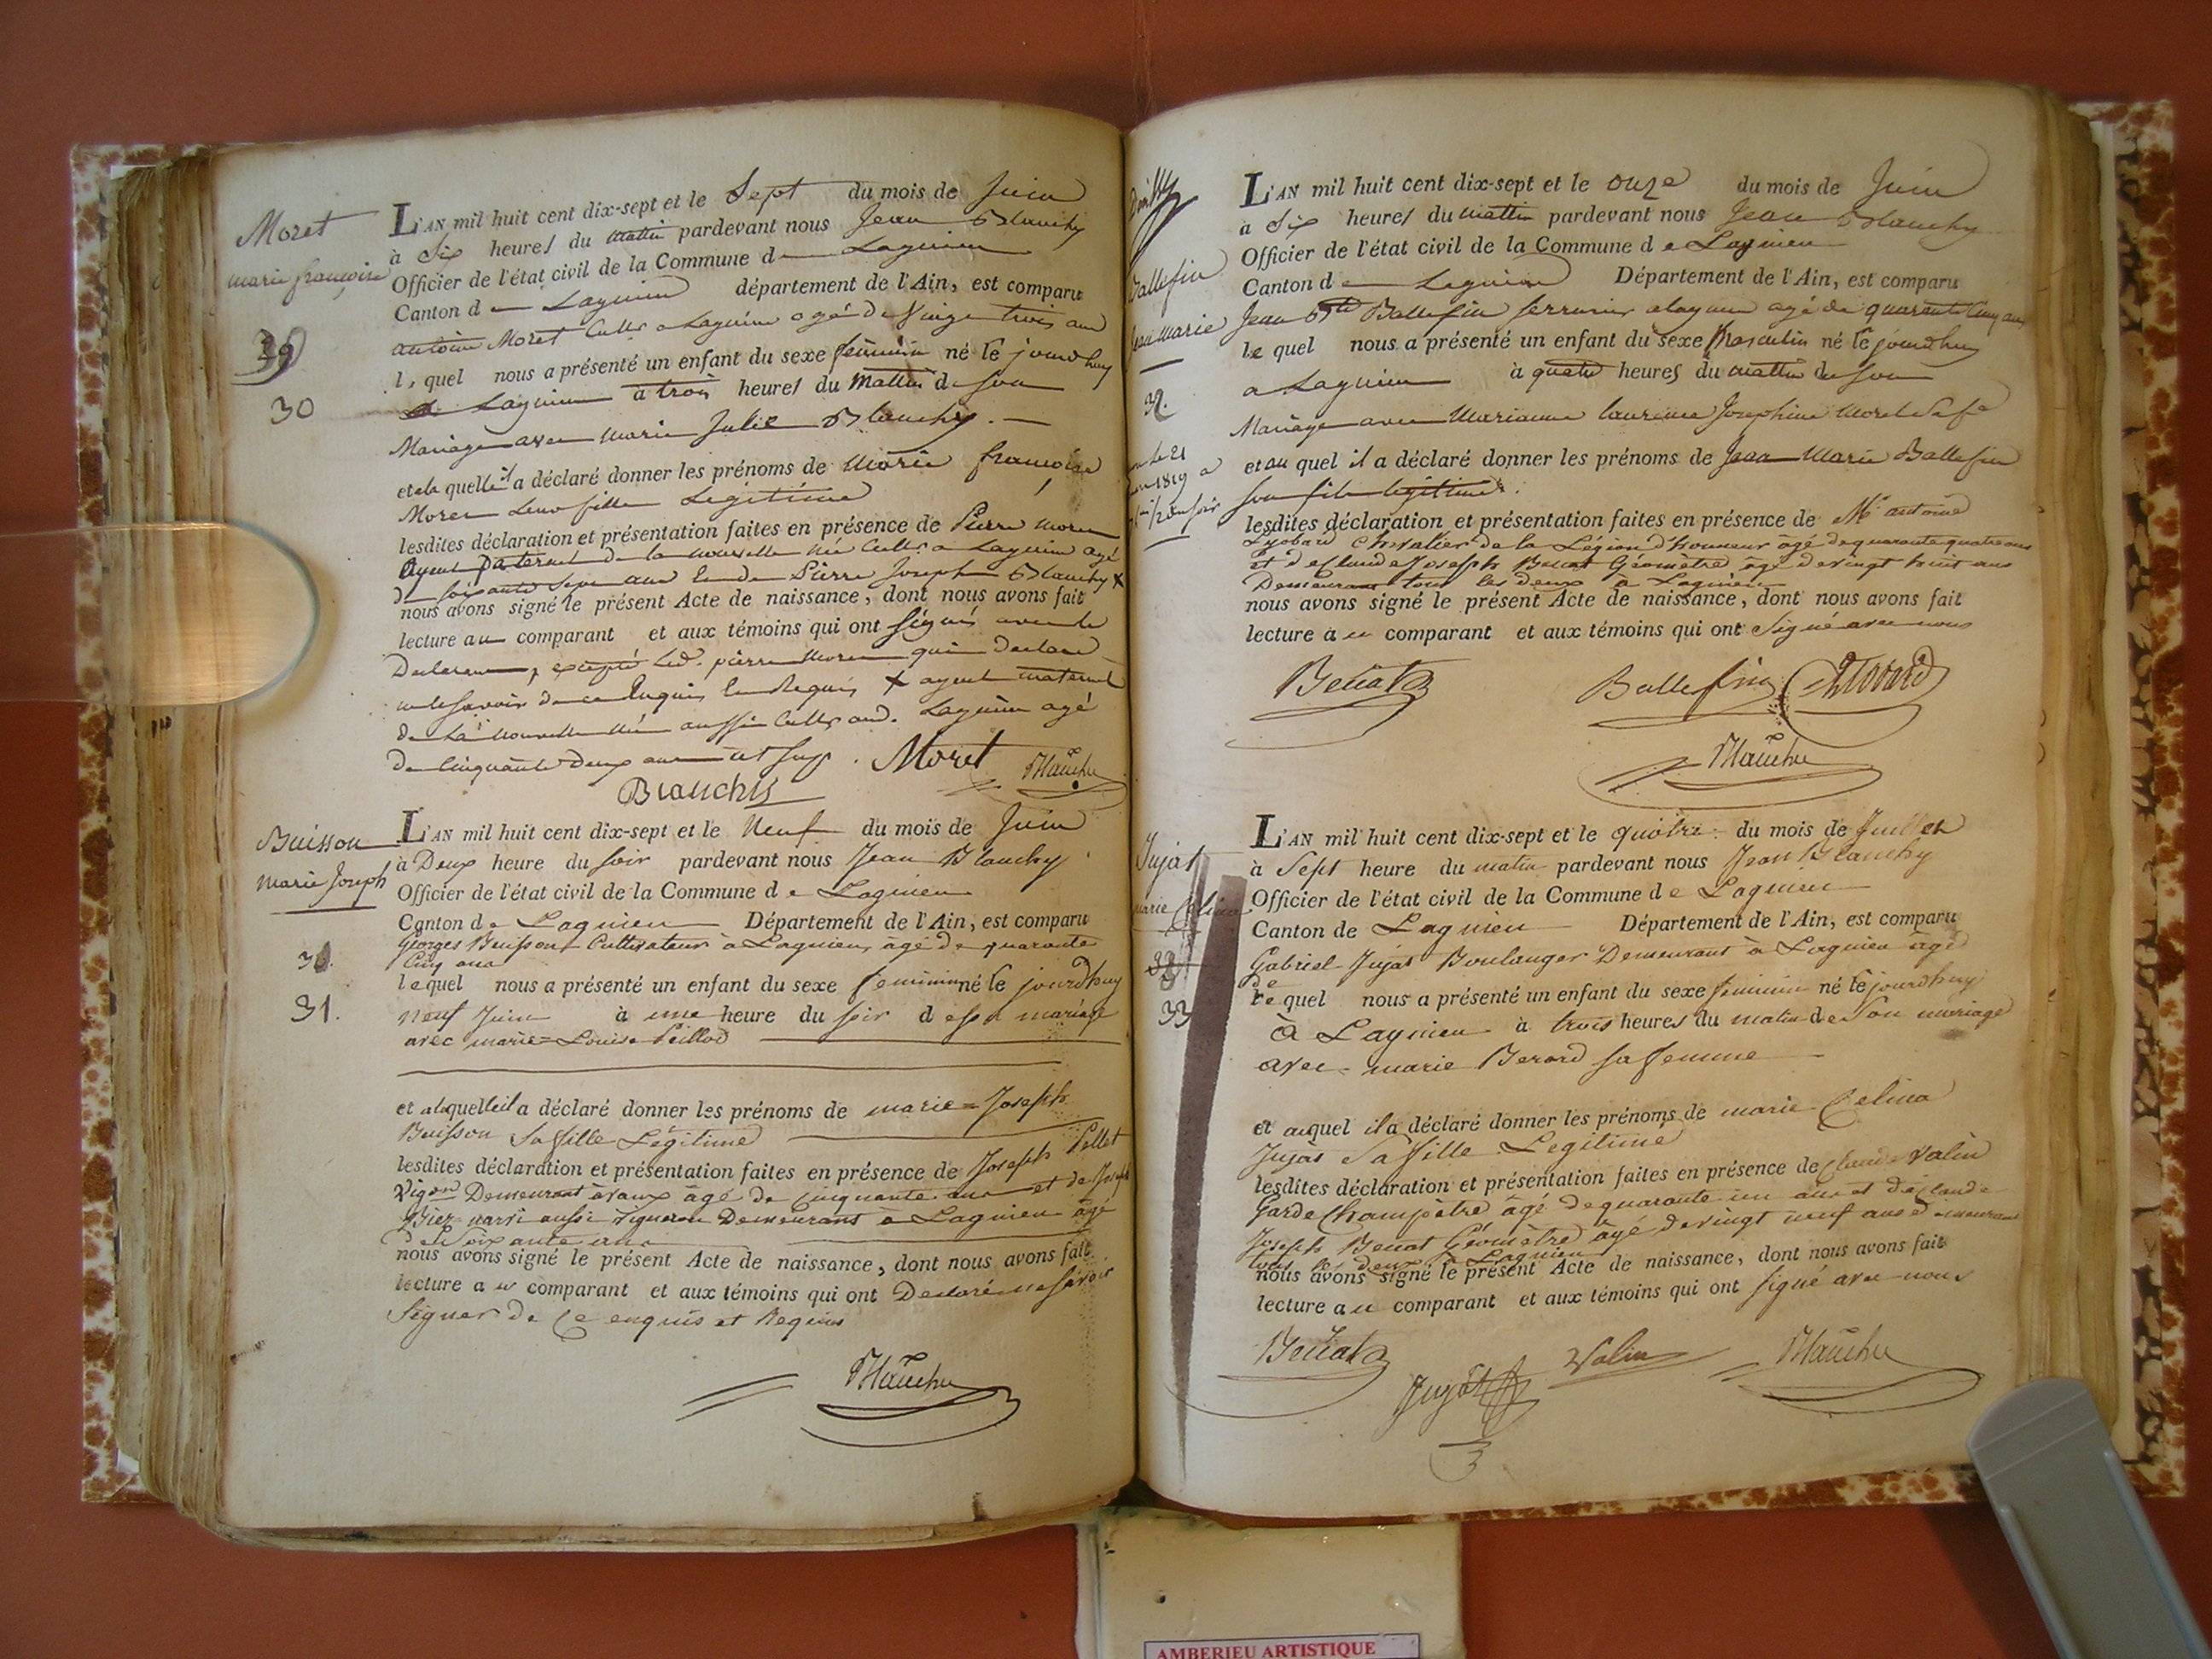 Moret
marie françoise
30
L'AN mil huit cent dix-sept et le Sept du mois de Juin
à Six heures du mattin pardevant nous Jean Blanchy
Officier de l'état civil de la Commune d Lagnieu
Canton d Lagnieu département de l'Ain, est comparu
antoine Moret Cultr a Lagnieu agé de Vingt trois ans
lequel nous a présenté un enfant du sexe féminin né le jourdhuy
Lagnieu à trois heures du Mattin de son
Mariage avec marie Julie Blanchy.
et a la quelle il a déclaré donner les prénoms de Marie françoise
Moret leur fille Légitime
lesdites déclaration et présentation faites en présence de Pierre Moret
Ayeul paternel de la nouvelle née Cultr a Lagnieu agé
de soixante Sept ans et de Pierre Joseph Blanchy X
nous avons signé le présent Acte de naissance, dont nous avons fait
lecture au comparant et aux témoins qui ont signés avec le
Declarant, excepté led. pierre Moret qui a declaré
ne le savoir de ce Enquis et Requis X ayeul maternel
de La nouvelle née aussi Cultr aud. Lagnieu agé
de Cinquante Deux ans ut sup. Moret Blanchy
Blanchy
Buisson
Marie Joseph
31.
L'AN mil huit cent dix-sept et le Neuf du mois de Juin
à Deux heure du soir pardevant nous Jean Blanchy
Officier de l'état civil de la Commune de Lagnieu
Canton de Lagnieu Département de l'Ain, est comparu
Georges Buisson Cultivateur à Lagnieu, âgé de quarante
Cinq ans
lequel nous a présenté un enfant du sexe feminin né le jourdhuy
neuf Juin à une heure du soir de son mariage
avec marie=Louise Peillod
et a laquelle il a déclaré donner les prénoms de marie=Joseph
Buisson sa fille Légitime
lesdites déclaration et présentation faites en présence de Joseph Pellet
Vigon Demeurant à vaux âgé de cinquante ans et de Joseph
aussi vigneron Demeurant à Lagnieu âgé
de Soixante ans
nous avons signé le présent Acte de naissance, dont nous avons fait
lecture au comparant et aux témoins qui ont Declaré ne savoir
Signer de Ce enquis et Requis
Blanchy
Ballefin
Jean Marie
32.
L'AN mil huit cent dix-sept et le onze du mois de Juin
à Six heures du mattin pardevant nous Jean Blanchy
Officier de l'état civil de la Commune de Lagnieu
Canton d Lagnieu Département de l'Ain, est comparu
Jean Bte Ballefin serrurier a Lagnieu agé de quarante Cinq ans
lequel nous a présenté un enfant du sexe Masculin né le jourdhuy
a Lagnieu à quatre heures du mattin de son
Mariage avec Marianne laurence Josephine Morel Sa fe
et au quel il a déclaré donner les prénoms de Jean Marie Ballefin
son fils légitime.
lesdites déclaration et présentation faites en présence de Mr antoine
Chevalier de la Légion d'honneur âgé de quarante quatre ans
et de Claude Joseph Benat Géomètre âgé de vingt huit ans
Demeurant tous les deux a Lagnieu
nous avons signé le présent Acte de naissance, dont nous avons fait
lecture au comparant et aux témoins qui ont Signé avec nous
Benat Ballefin
Blanchy
Jujat
marie Celina
33
L'AN mil huit cent dix-sept et le quatre du mois de Juillet
à Sept heure du matin pardevant nous Jean Blanchy
Officier de l'état civil de la Commune de Lagnieu
Canton de Lagnieu Département de l'Ain, est comparu
Gabriel Jujat Boulanger Demeurant à Lagnieu âgé
de
lequel nous a présenté un enfant du sexe feminin né le jourdhuy
à Lagnieu à trois heures du matin de Son mariage
avec marie Berard sa femme
et auquel il a déclaré donner les prénoms de marie Celina
Jujat Sa fille Legitime
lesdites déclaration et présentation faites en présence de Claude Valin
Garde Champetre âgé de quarante un ans et de Claude
Joseph Benat Géomètre âgé de vingt neuf ans demeurant
tous les deux à Lagnieu
nous avons signé le présent Acte de naissance, dont nous avons fait
lecture au comparant et aux témoins qui ont signé avec nous
Benat Jujat Valin Blanchy
AMBERIEU ARTISTIQUE